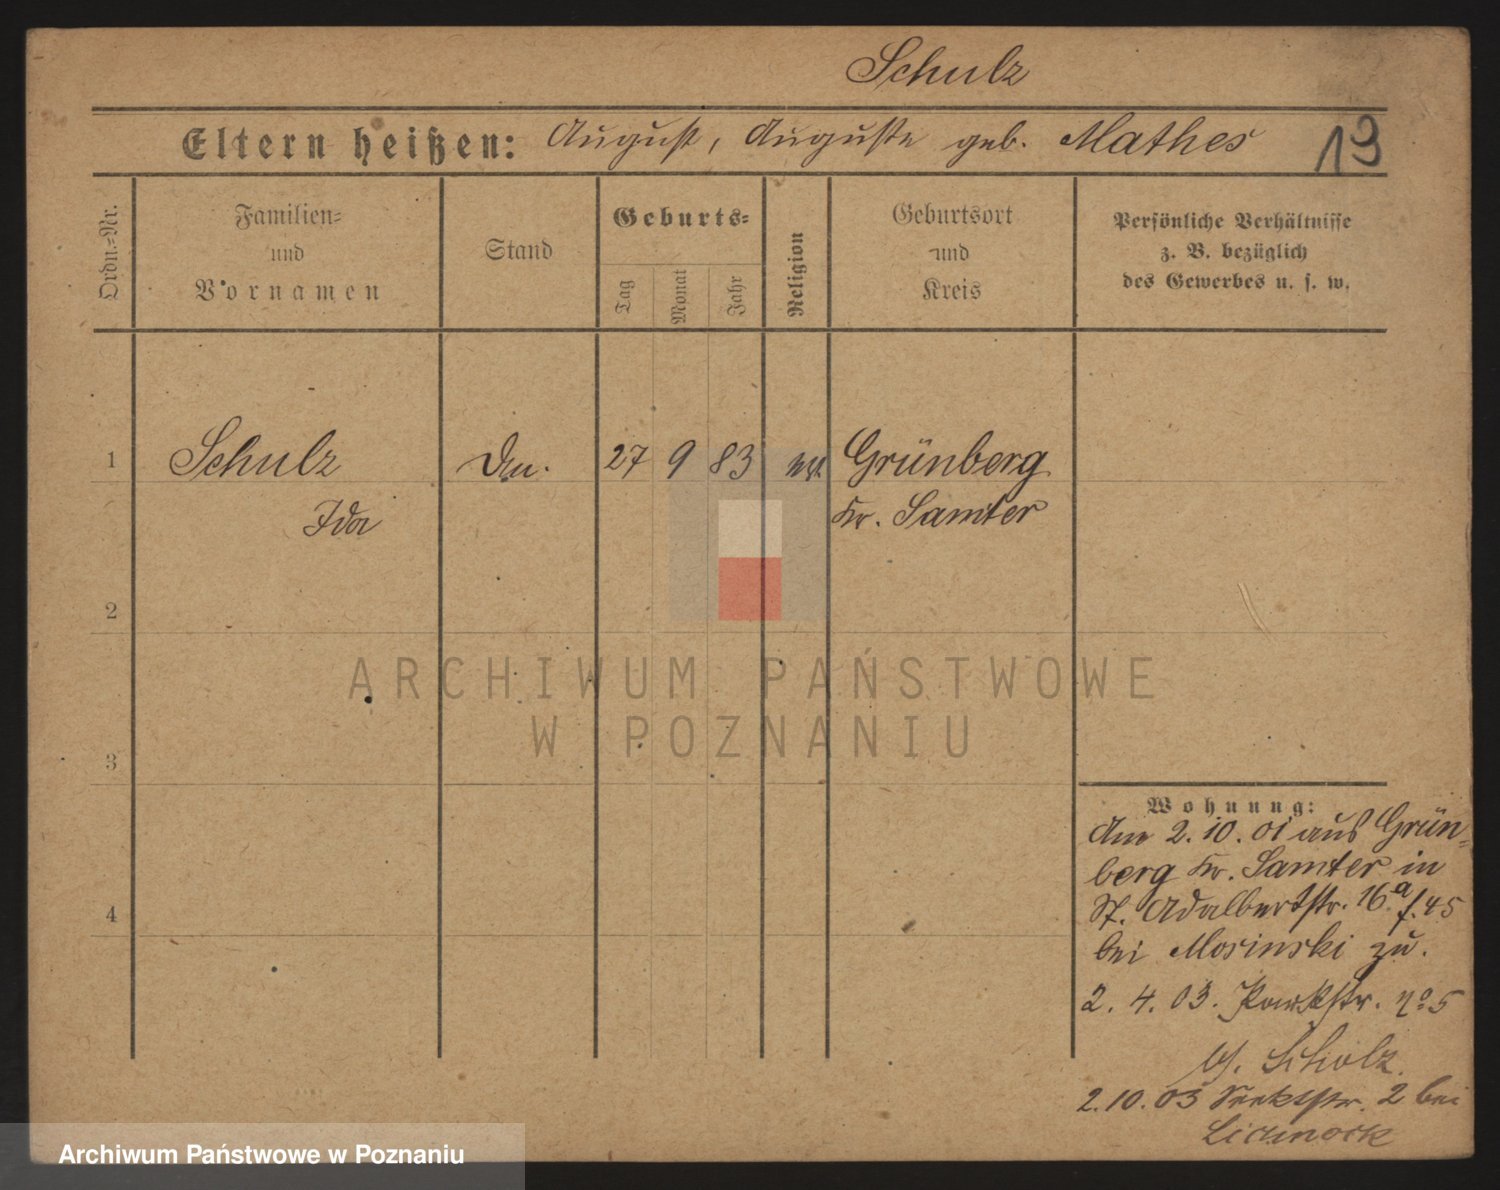 Schulz
Eltern heißen: August, Auguste geb. Mathes
13
Ordn.-Nr.
Familien-
und
Vornamen
Stand
Geburts-
Tag
Monat
Jahr
Religion
Geburtsort
und
Kreis
Persönliche Verhältnisse
z. B. bezüglich
des Gewerbes u. s. w.
1 Schulz 27 9 83 Grünberg
Ida Kr. Samter
2
ARCHIWUM PAŃSTWOWE
W POZNANIU
3
Wohnung:
Am 2.10.01 aus Grün-
berg Kr. Samter in
St. Adalbertstr. 16a f. 45
4
bei Mosinski zu.
2. 4. 03. Parkstr. No 5
b/. Scholz.
2.10.03 2 bei
Archiwum Państwowe w Poznaniu